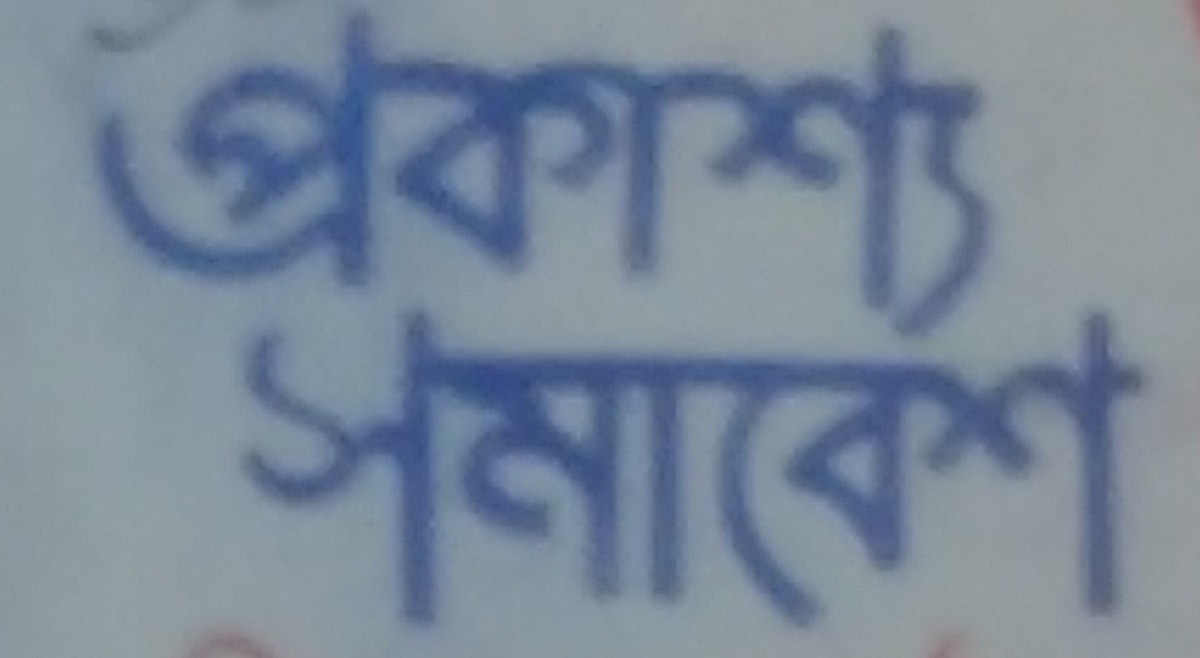 প্ৰকাশ্য
সমাবেশ